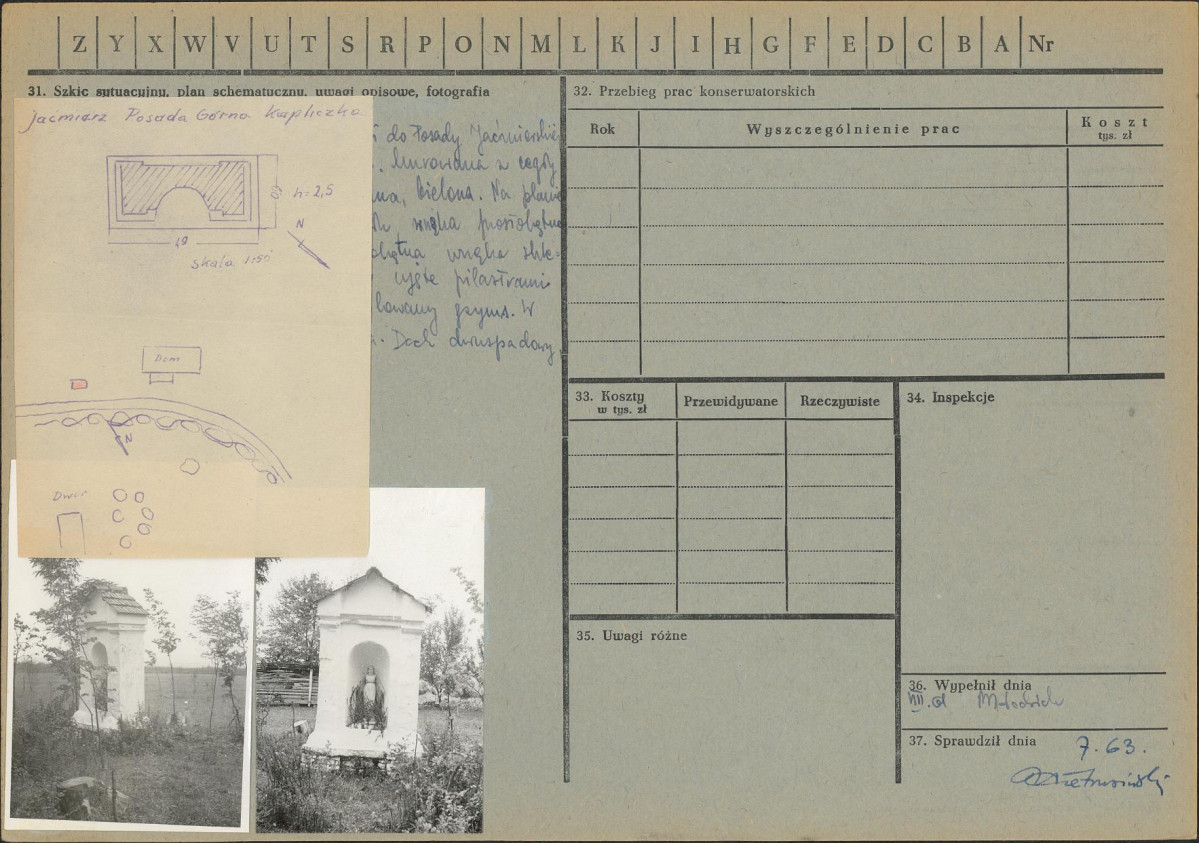 Z Y X W V U T S R P O N M L K J I H G F E D C B A Nr
31. Szkic sytuacyjny, plan schematyczny, uwagi opisowe, fotografia
Jacmierz Posada Górna Kapliczka
do Posady Jaćmierskiej
. Murowana z cegły
bielona. Na planie
wnęka prostokątna
wnęka skle=
ujęte pilastrami
gzyms. W
. Dach dwuspadowy,
h=2,5
N
skala 1:50
Dom
N
Dwór
32. Przebieg prac konserwatorskich
Rok
Wyszczególnienie prac
Koszt
tys. zł
33. Koszty
w tys. zł
Przewidywane
Rzeczywiste
34. Inspekcje
35. Uwagi różne
36. Wypełnił dnia
37. Sprawdził dnia
7.63.